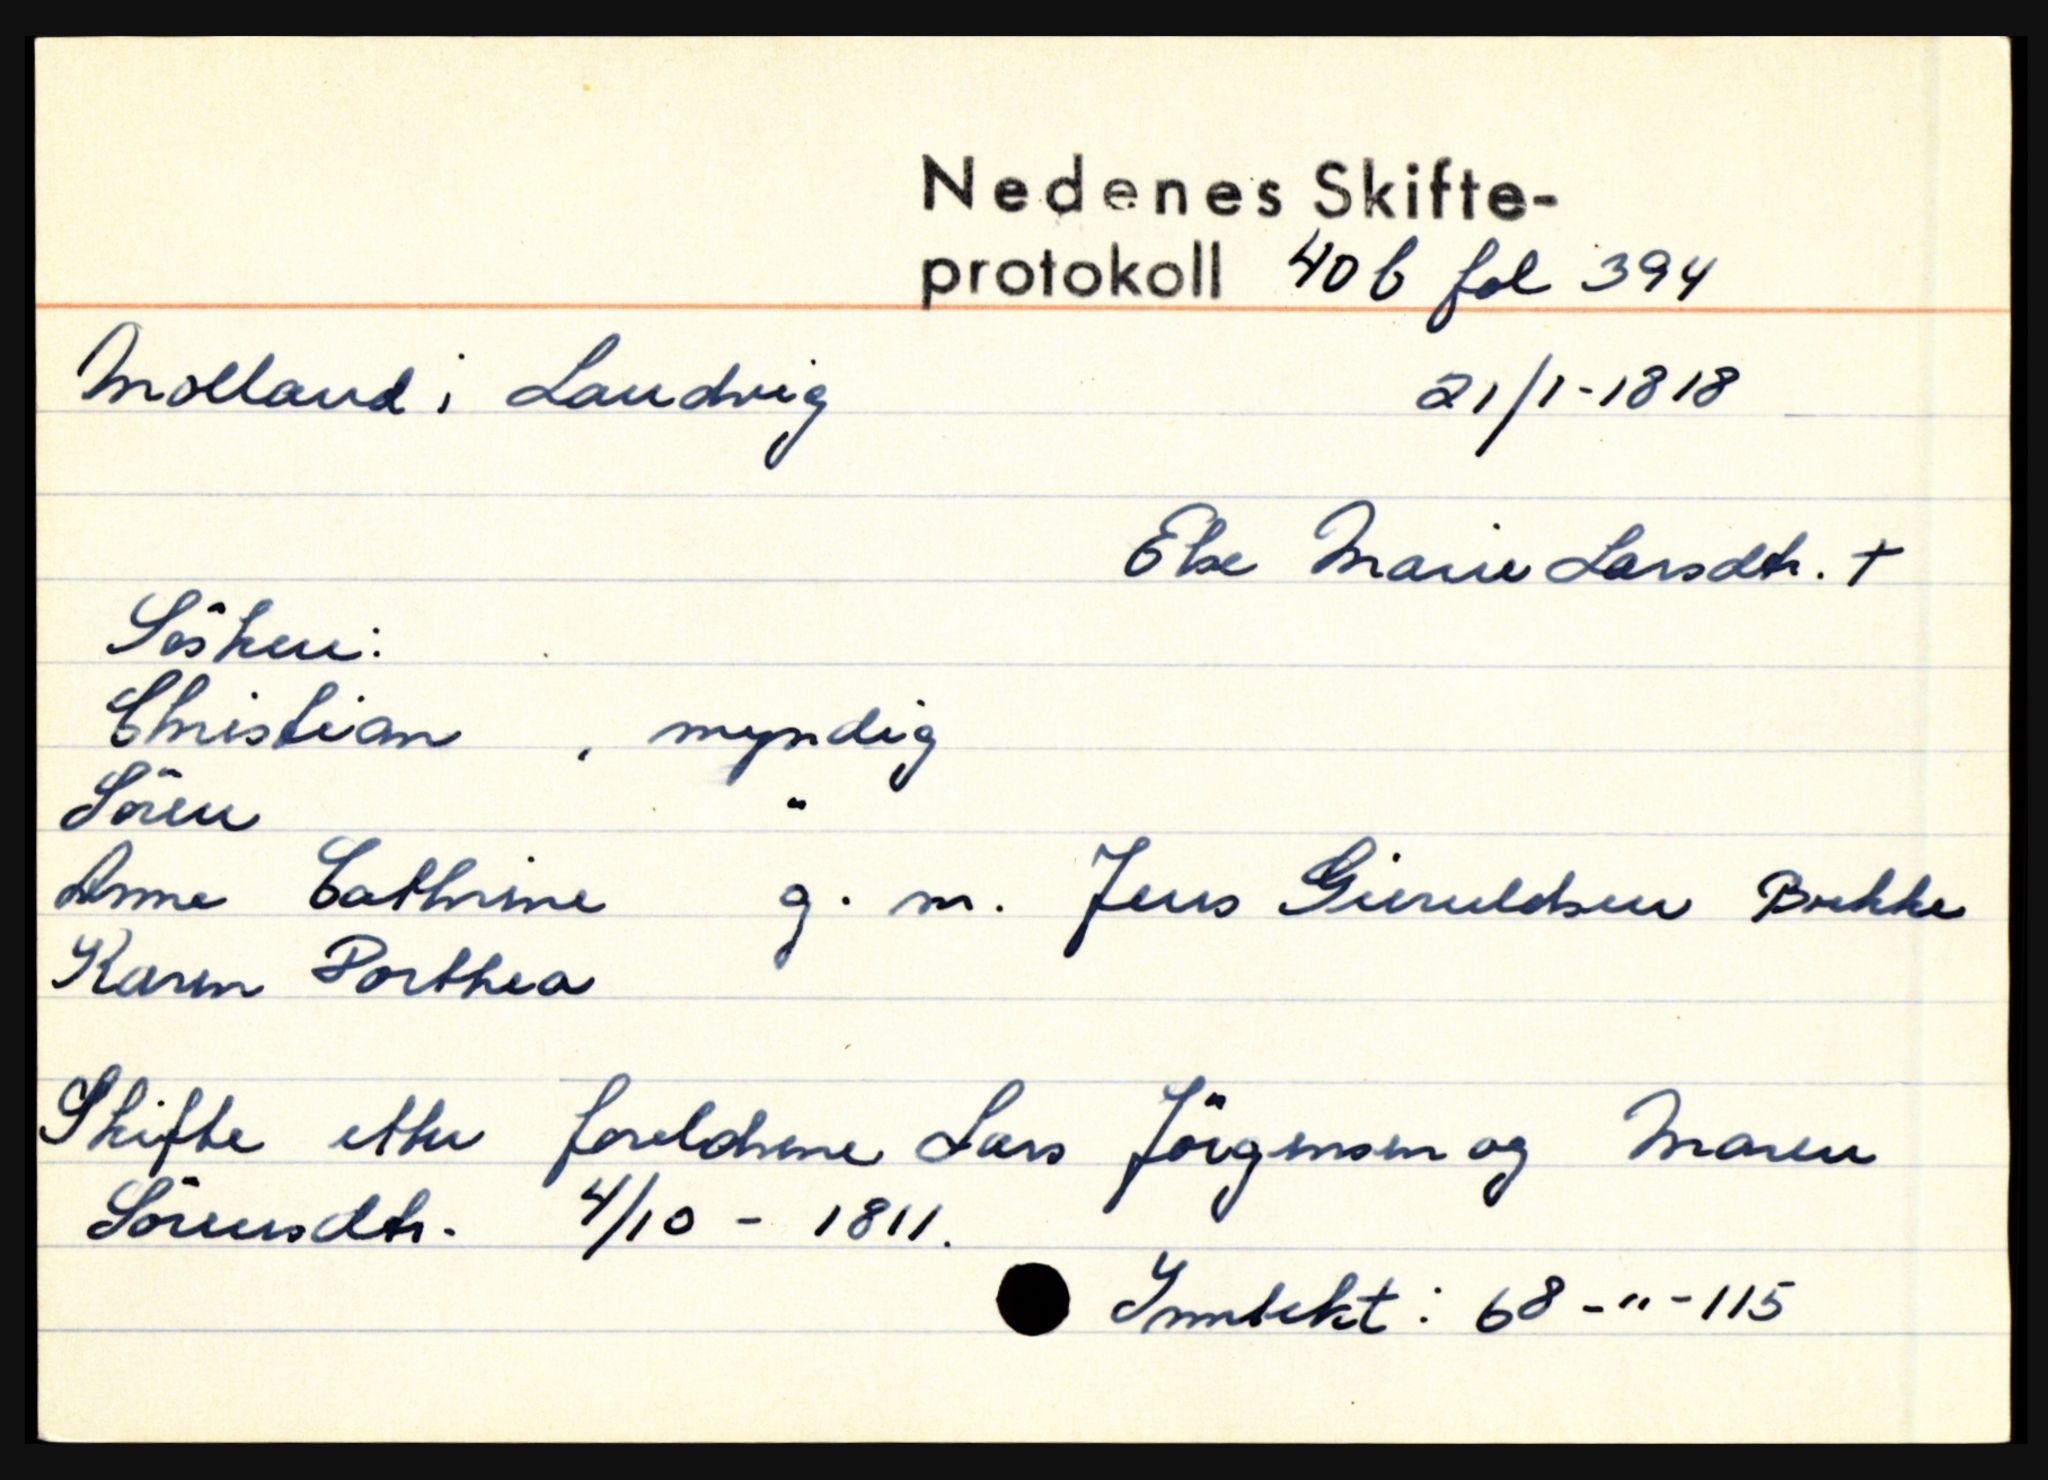 Nedenes Skifte-
protokoll 40 b fol 394
Molland i Landvig 21/1-1818
Else Marie Larsdtr. +
Sösken:
Christian , myndig
Sören "
Anne Cathrine g. m. Jens Gieruldsen Brekke
Karen Dorthea
Skifte etter foreldrene Lars Jörgensen og Maren
Sörensdtr. 4/10 - 1811.
Inntekt: 68-"-115